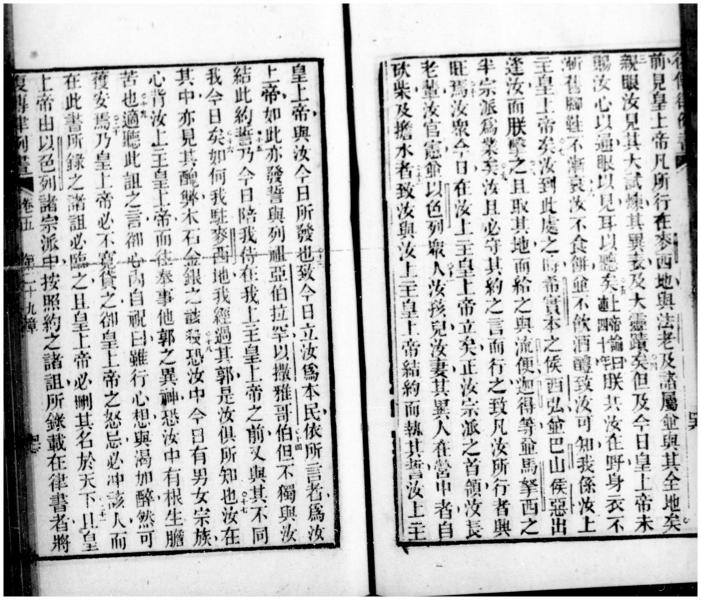 前見皇上帝凡所行在麥西地與法老及諸屬並與其全地矣
親眼汝見其大試煉其異表及大靈蹟矣但及今日皇上帝未
賜汝心以通眼以見耳以聽矣上帝諭曰連四十年朕共汝在野身衣不
漸舊腳鞋不漸衰汝不食餅並不飲酒醴致汝可知我係汝上
主皇上帝矣汝到此處之時希實本之侯西弘並巴山侯惡出
逢汝而朕擊之且取其地而給之與流便迦得等並馬拏西之
半宗派為業矣汝且必守其約之言而行之致凡汝所行者興
旺焉汝眾今日在汝上主皇上帝立矣正汝宗派之首領汝長
老輩汝官憲並以色列眾人汝孩兒汝妻其異人在營中者自
砍柴及擔水者致汝與汝上主皇上帝結約而執其誓汝上主
皇上帝與汝今日所發也致今日立汝為本民依所言者為汝
上帝如此亦發誓與列祖亞伯拉罕以撒雅哥伯但不獨與汝
結此約誓乃今日陪我侍在我上主皇上帝之前又與其不同
我今日矣如何我駐麥西地我經過其郭是汝俱所知也汝在
其中亦見其醜弊木石金銀之該殺恐汝中今日有男女宗族
心背汝上主皇上帝而往奉事他郭之異神恐汝中有根生膽
苦也適聽此詛之言卻心內自祝曰雖行心想與渴加醉然可
獲安焉乃皇上帝必不寬貸之卻皇上帝之怒忌必冲該人而
在此書所錄之諸詛必臨之且皇上帝必刪其名於天下且皇
上帝由以色列諸宗派中按照約之諸詛所錄載在律書者將
復傳律例書 卷五 第二十九章